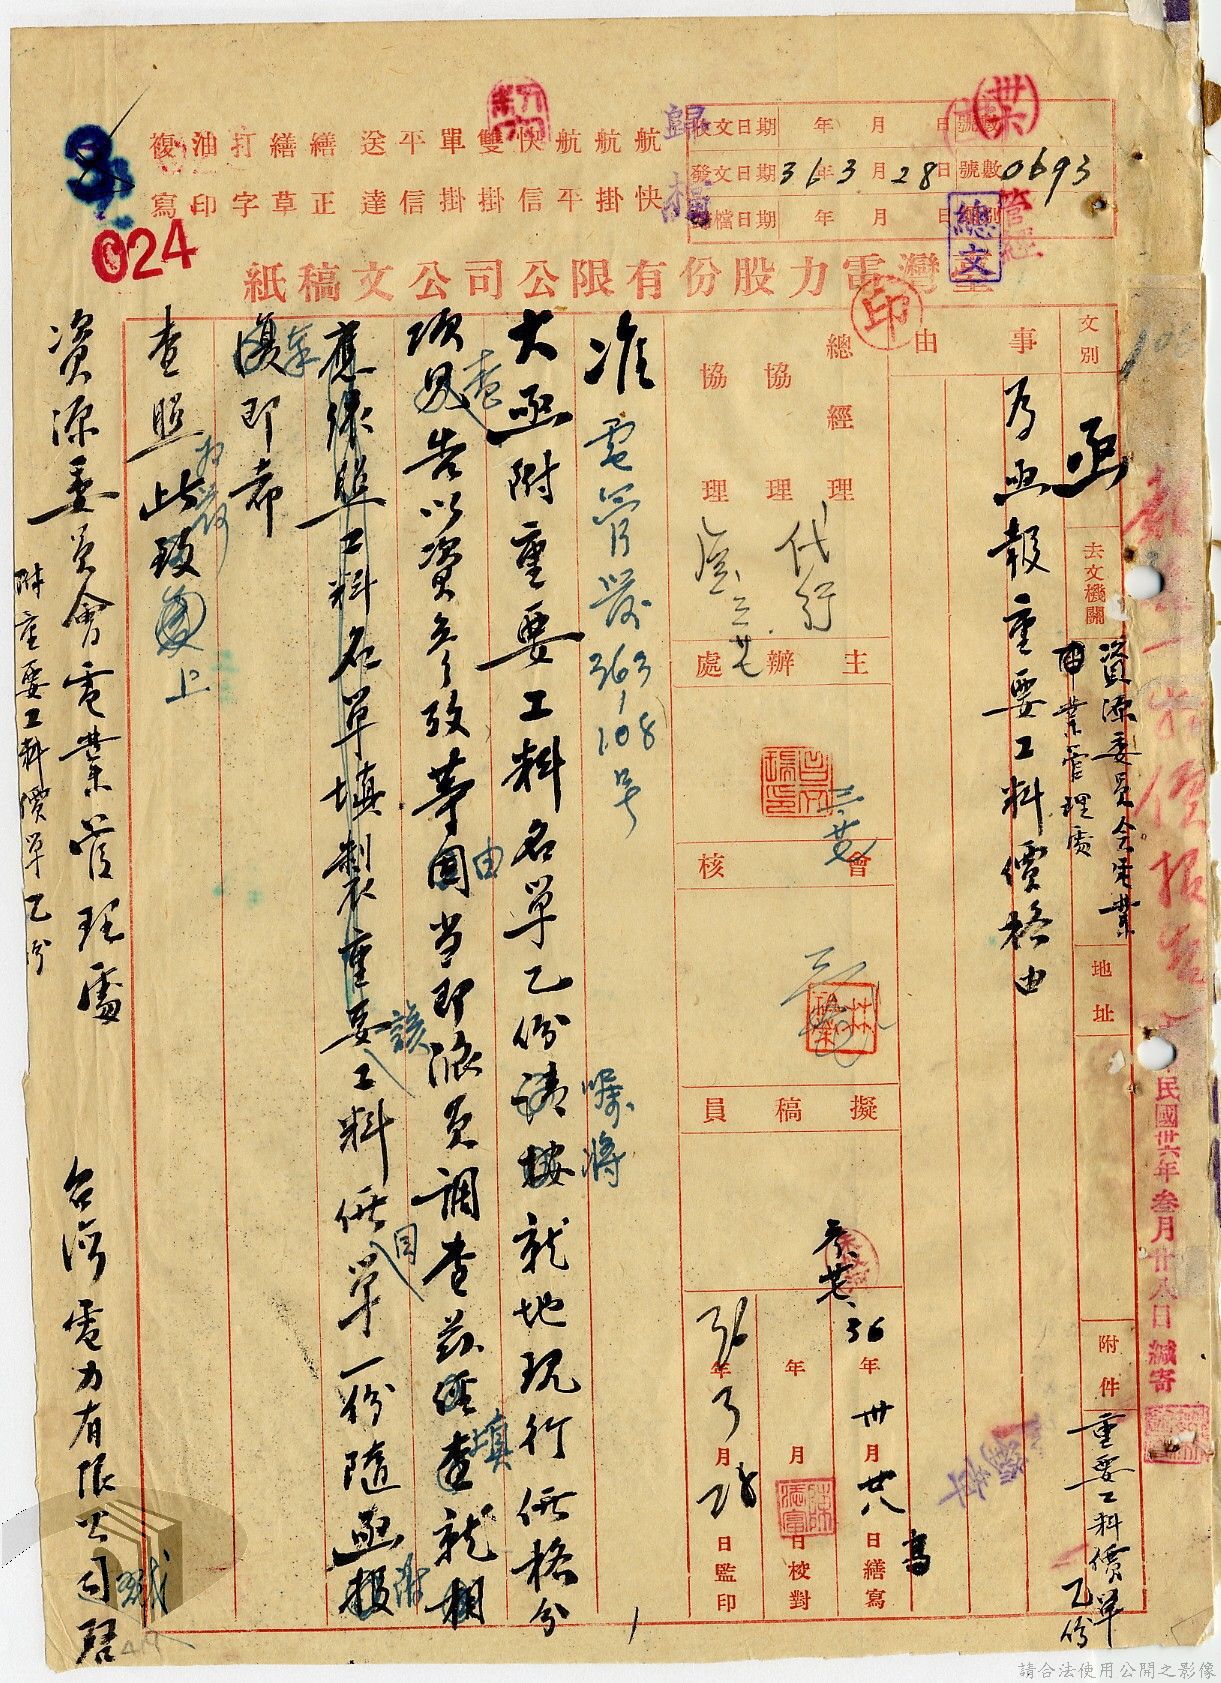 收文日期 年 月 日 號數
發文日期 36年3月28日 號數 0693
歸檔日期 年 月 日
歸檔
總文
管經
航快
航掛
航平
快信
雙掛
單掛
平信
送達
繕正
繕草
打字
油印
複寫
024
臺灣電力股份有限公司公文稿紙
印
文別 函
去文機關 資源委員會電業
管理處
地址
附件 重要工料價單
乙份
事由
為函報重要工料價格由
總經理
協理
協理
代行
主辦處
會核
擬稿員
36年 卅月廿八日繕寫
年 月 日校對
36年3月28日監印
准電管業363
108號
大函附重要工料名單乙份請按就地現行價格分
囑將
項查告以資參攷等由當即派員調查茲經查就相
填
應依照工料名單填製重要工料價單一份隨函報
該
目
附
復即希
查照為荷此致
上
資源委員會電業管理處
附重要工料價單乙份
台灣電力有限公司啓
民國卅六年叁月廿八日緘寄
請合法使用公開之影像